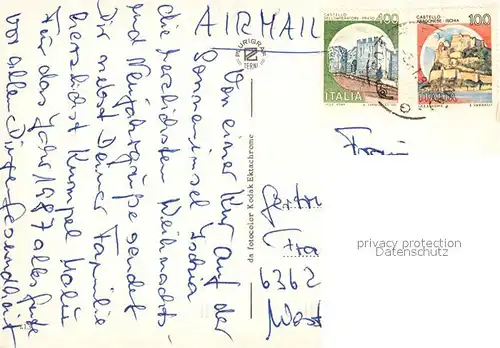 AIRMAIL
Von einer Kur auf der
Sonneninsel Ischia
die herzlichsten Weihnachts-
und Neujahrsgrüße sendet
Dir nebst Deiner Familie
herzlichst
Für das Jahr 1987 alles Gute
vor allen Dingen Gesundheit
PURIGRAF
TERNI
da fotocolor Kodak Ektachrome
CASTELLO
DELL'IMPERATORE - PRATO
400
ITALIA
CASTELLO
ARAGONESE - ISCHIA
100
Gertr
Fra
6362
Wöst
privacy protection
Datenschutz